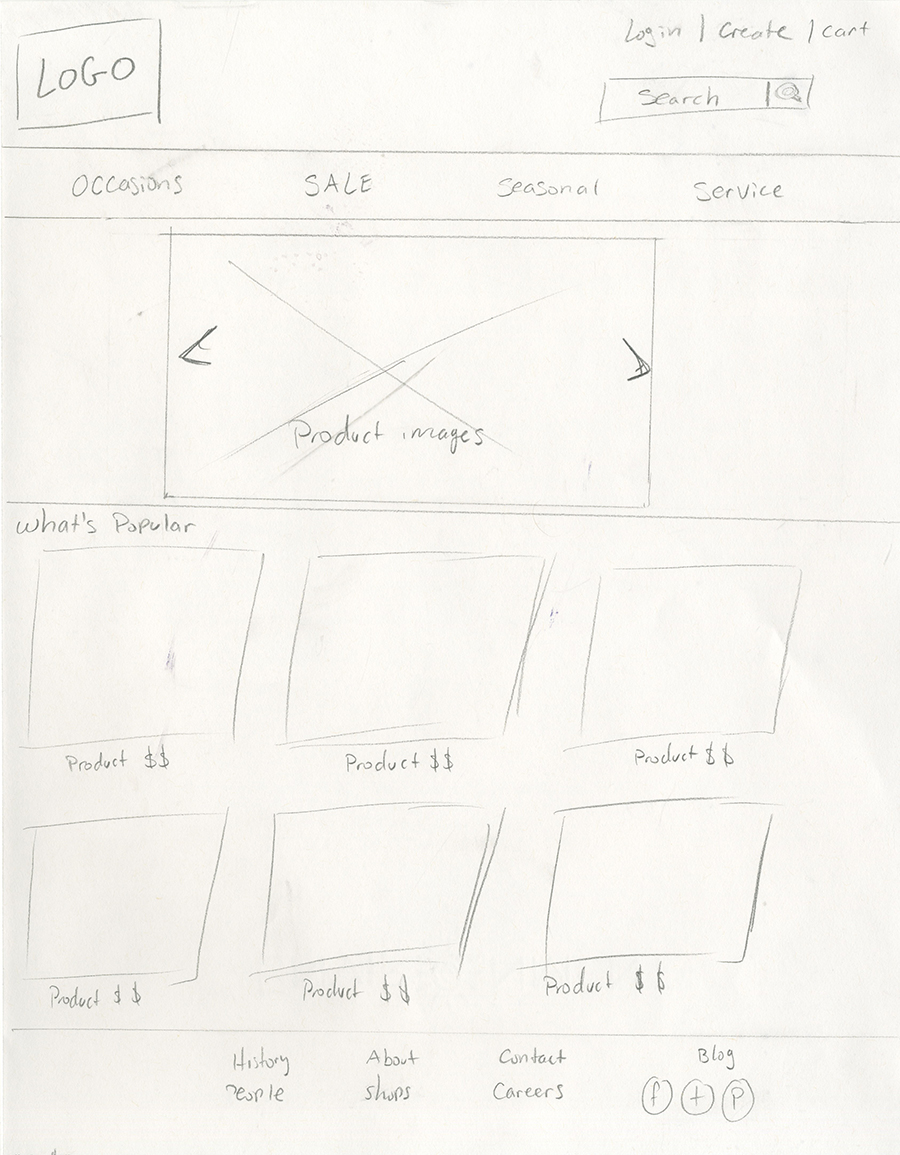 LOGO
Login | Create | cart
Search
Occasions SALE Seasonal Service
Product images
What's Popular
Product $$ Product $$ Product $$
Product $$ Product $$ Product $$
History About Contact Blog
People Shops Careers f t P